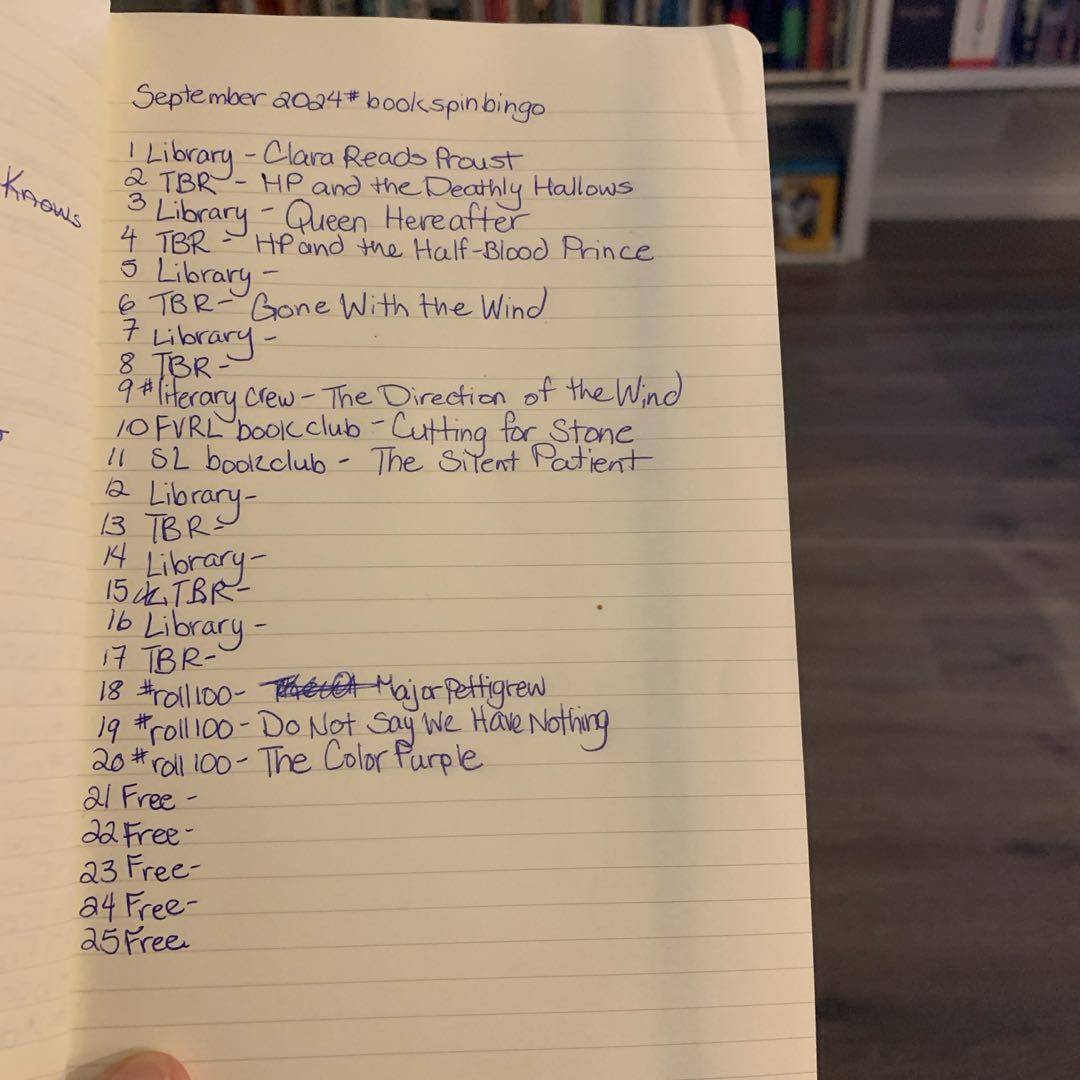 Knows
September 2024 #bookspinbingo
1 Library - Clara Reads Proust
2 TBR - HP and the Deathly Hallows
3 Library - Queen Hereafter
4 TBR - HP and the Half-Blood Prince
5 Library -
6 TBR - Gone With the Wind
7 Library -
8 TBR -
9 #literary crew - The Direction of the Wind
10 FVRL bookclub - Cutting for Stone
11 SL bookclub - The Silent Patient
12 Library -
13 TBR -
14 Library -
15 TBR -
16 Library -
17 TBR -
18 #roll100 - Major Pettigrew
19 #roll100 - Do Not Say We Have Nothing
20 #roll100 - The Color Purple
21 Free -
22 Free -
23 Free -
24 Free -
25 Free